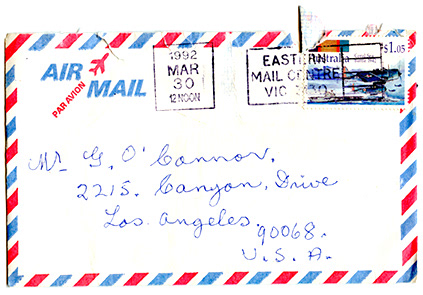 AIR MAIL
PAR AVION
1992
MAR
30
12 NOON
EASTERN
MAIL CENTRE
VIC
Australia
$1.05
Mr G. O'Connor,
2215. Canyon, Drive
Los. Angeles.
90068.
U. S. A.